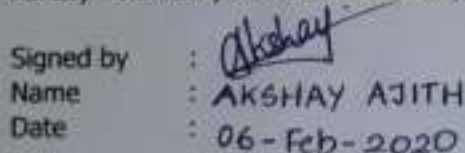 Signed by : Akshay
Name : AKSHAY AJITH
Date : 06-Feb-2020